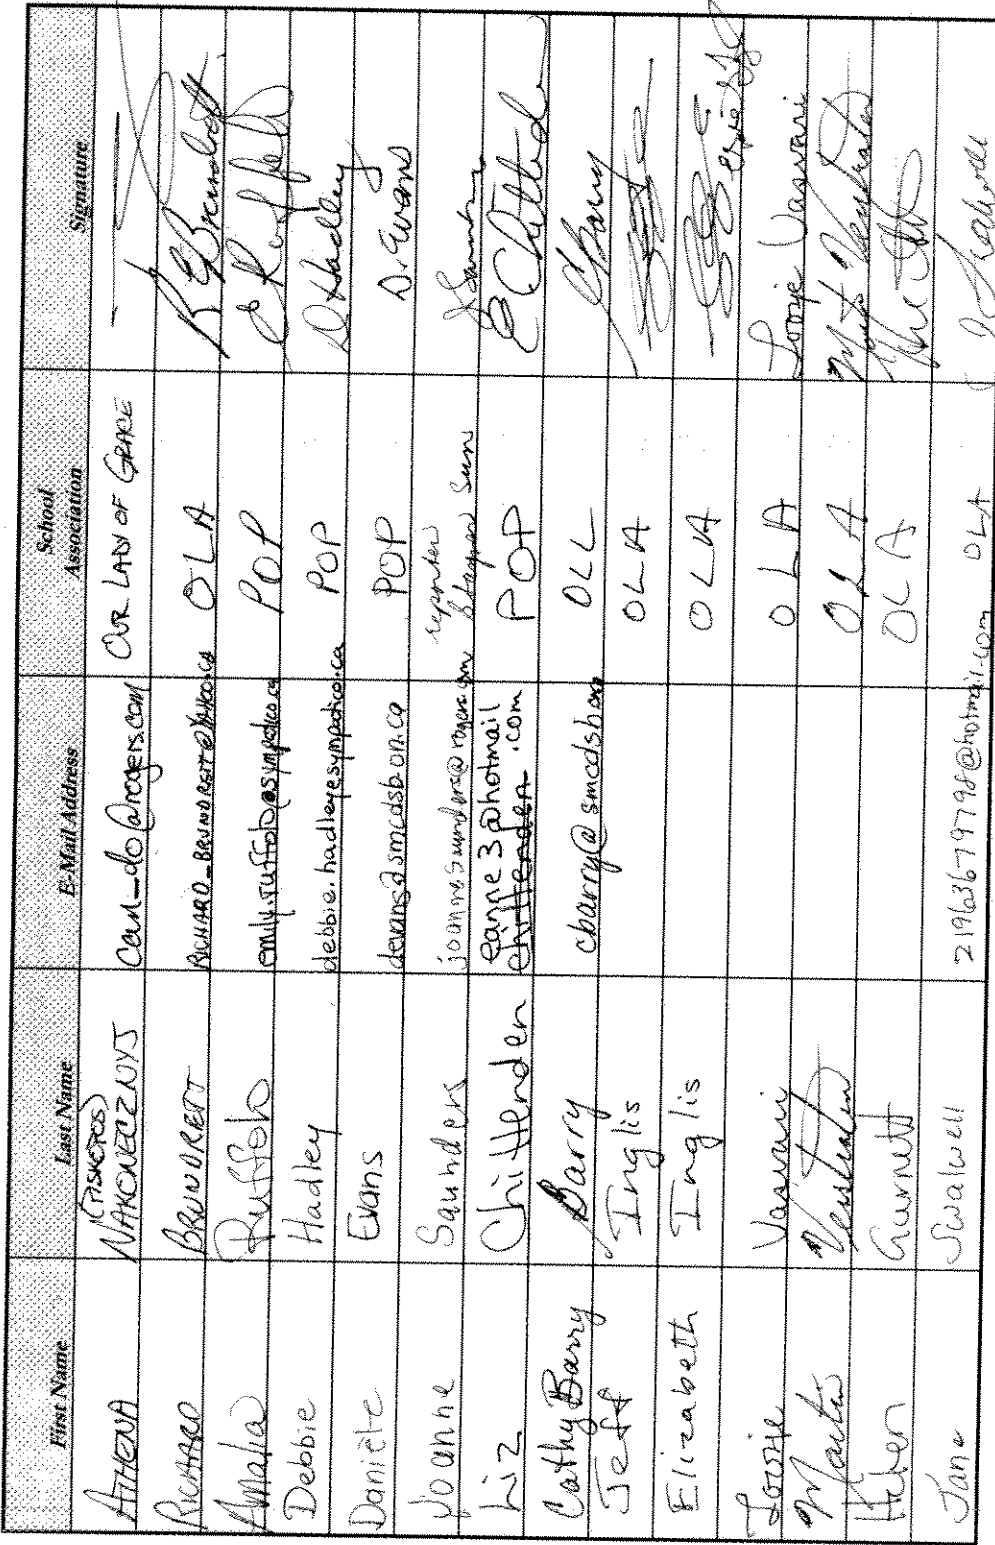 First Name Last Name E-Mail Address School Association Signature
ATHENA (TSKOTOS) NAKONECZNYJ can_do@rogers.com OUR LADY OF GRACE
RICHARD BRUNDRETT RICHARD_BRUNDRETT@YAHOO.CA OLA
Amalia Ruffolo emily.ruffolo@sympatico.ca POP
Debbie Hadley debbie.hadley@sympatico.ca POP D Hadley
Danièle Evans devans@smcdsb.on.ca POP D. Evans
Joanne Saunders joannesaunders@rogers.com reporter Sun
Liz Chittenden eanne3@hotmail.com POP E Chittenden
Cathy Barry Barry cbarry@smcdsb.on OLL CBarry
Jeff Inglis OLA
Elizabeth Inglis OLA
Lorrie Vasvari OLA Lorrie Vasvari
OLA
Helen Gurnett OLA
Jane Swalwell 21963679798@hotmail.com OLA J Swalwell